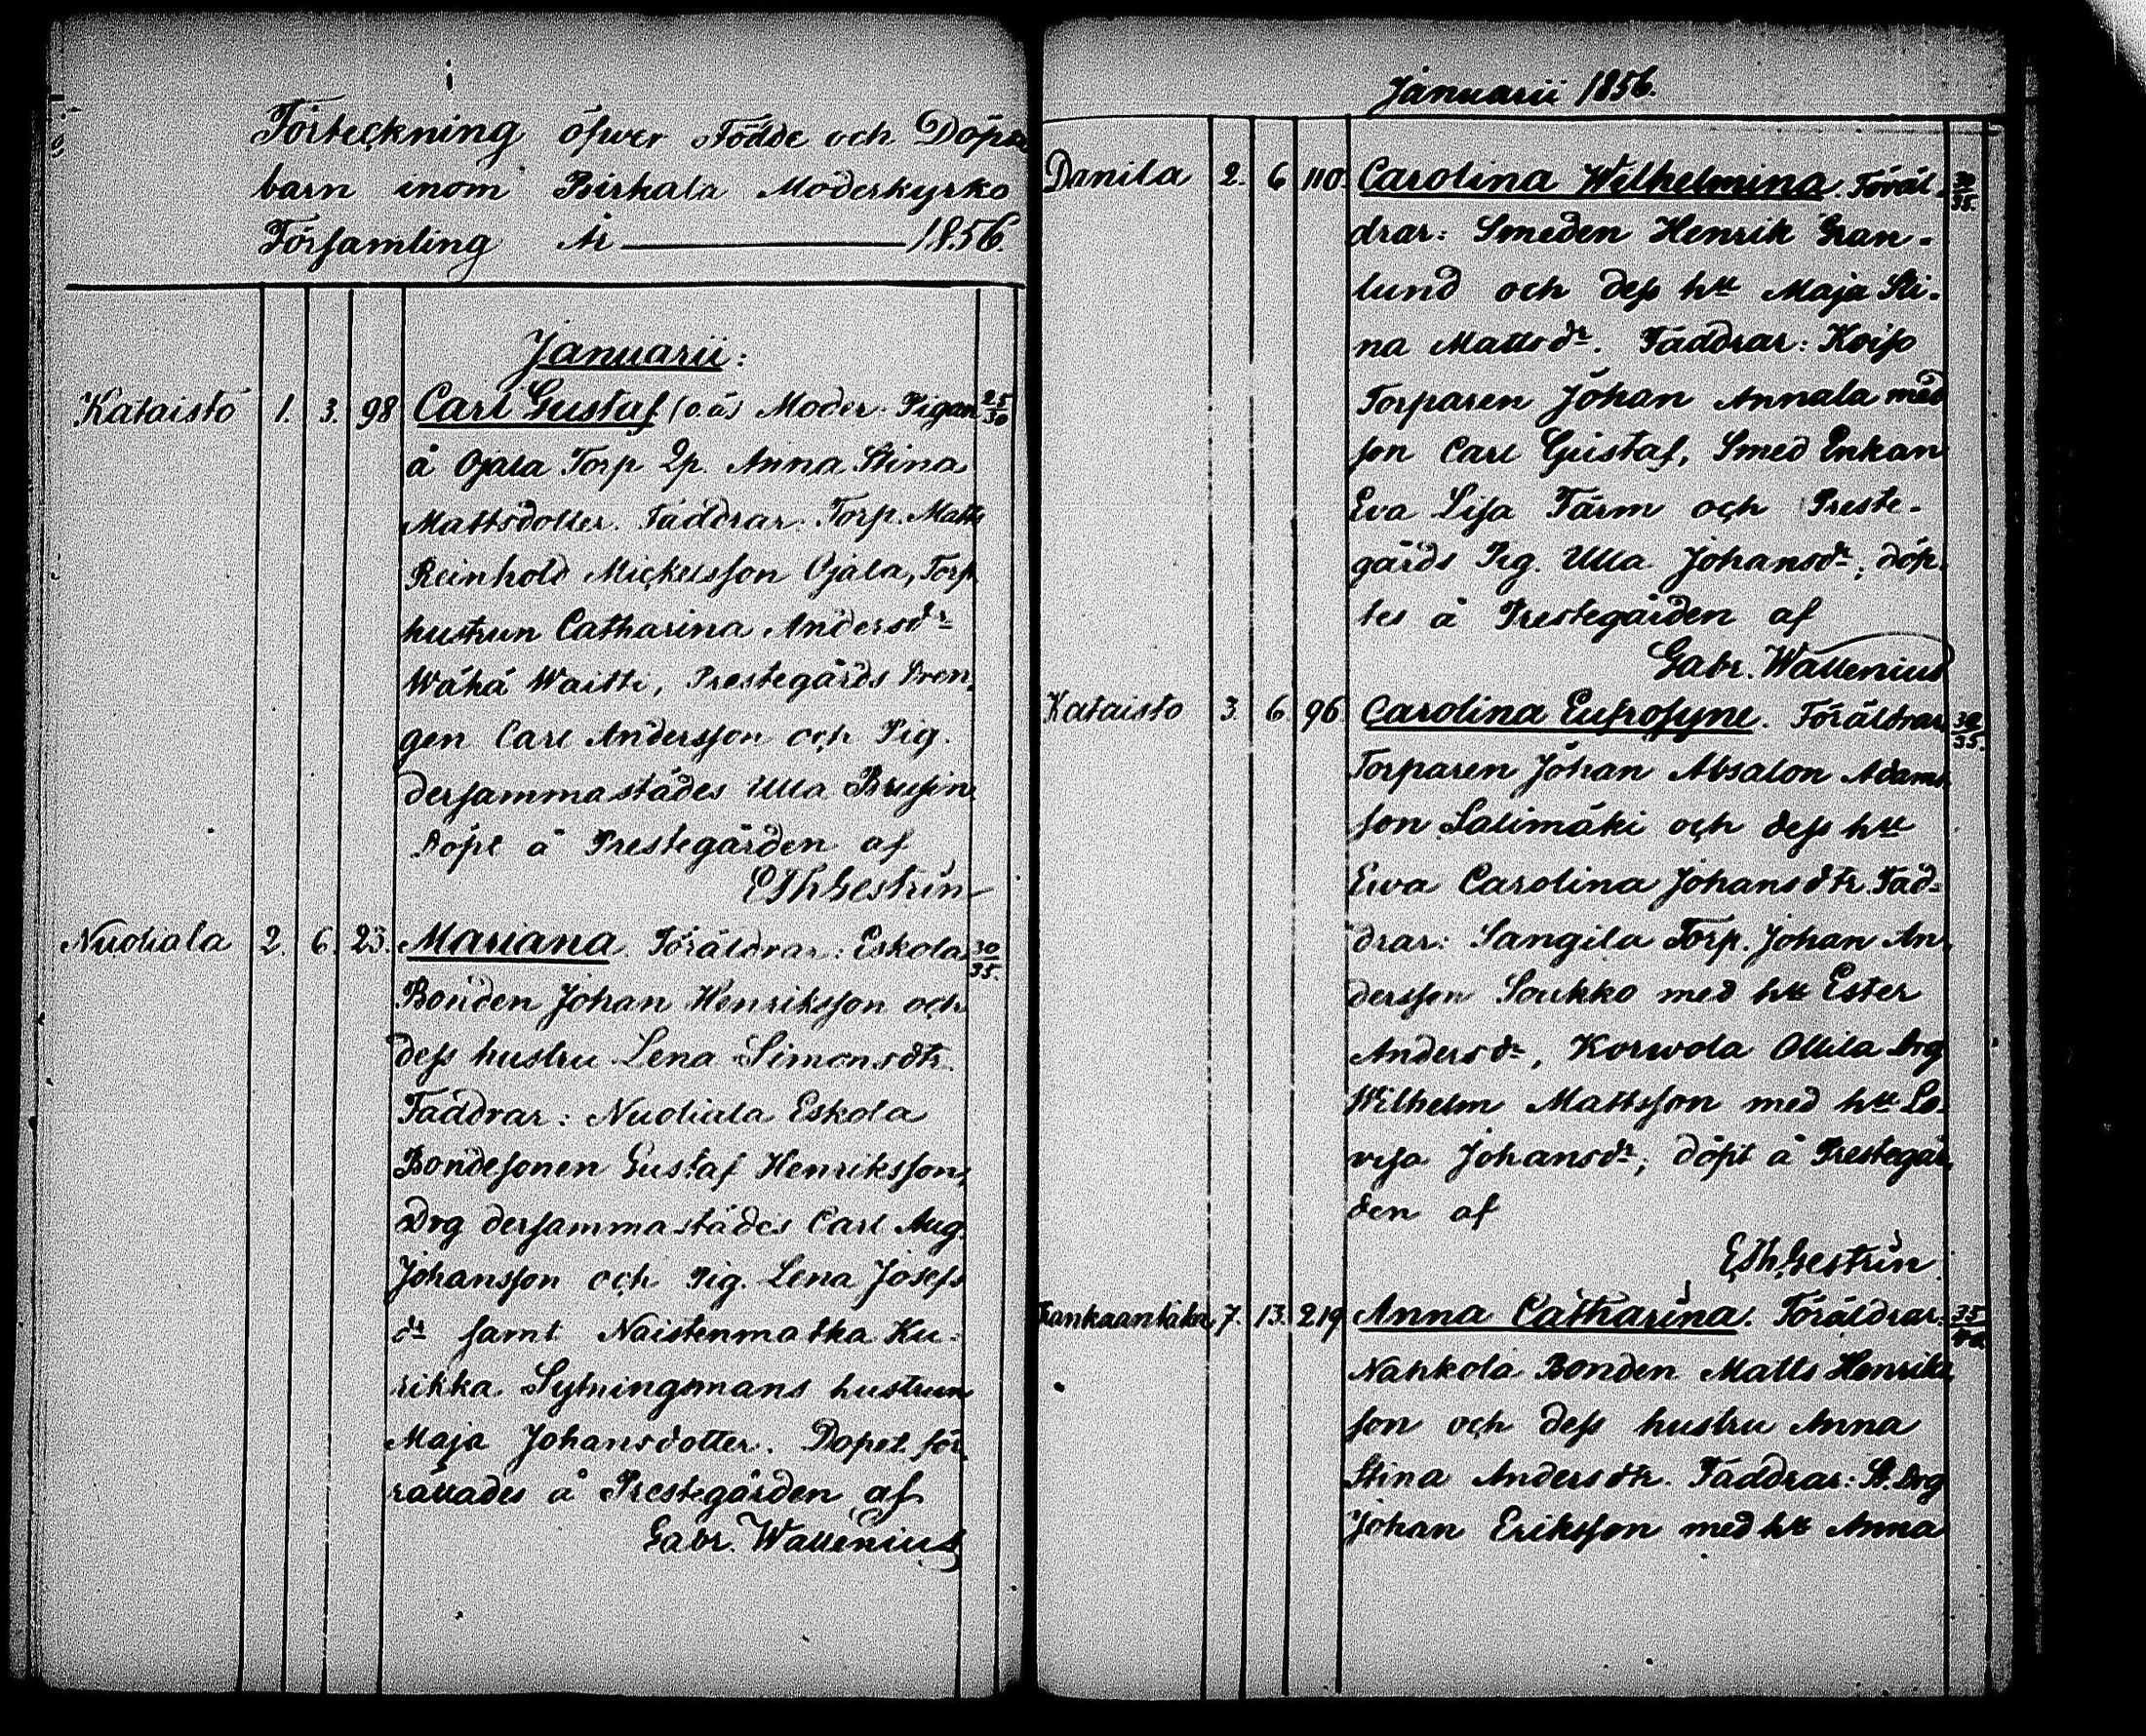 Förteckning öfwer Födde och Döpta
barn inom Birkala Moderkyrko
Församling År 1856.
Januarii:
Kataisto 1. 3. 98 Carl Gustaf (o.ä) Moder: Pigan 25/30
å Ojala Torp Anna Stina
Mattsdotter. Faddrar: Torp. Matts
Reinhold Mickelsson Ojala, Torp
hustrun Catharina Andersdr
Wähä Waitti, Prestegårds Dren-
gen Carl Andersson och Pig.
dersammastädes Ulla Brusin.
Döpt å Prestegården af
EThGestrin
Nuoliala 2. 6. 23. Mariana. Föräldrar: Eskola 30/35.
Bonden Johan Henriksson och
dess hustru Lena Simonsdtr.
Faddrar: Nuoliala Eskola
Bondesonen Gustaf Henriksson,
Drg dersammastädes Carl Aug.
Johansson och Pig. Lena Josefs
dr samt Naistenmatka Ku-
rikka Sytningsmans hustrun
Maja Johansdotter. Dopet för-
rättades å Prestegården af
Gabr. Wallenius
Januarii 1856.
Danila 2. 6 110. Carolina Wilhelmina. Föräl- 30/35.
drar: Smeden Henrik Gran-
lund och dess htt Maja Sti-
na Mattsdr. Faddrar: Koiso
Torparen Johan Annala med
son Carl Gustaf, Smed Enkan
Eva Lisa Färm och Preste-
gårds Pig. Ulla Johansdr; döp-
tes å Prestegården af
Gabr. Wallenius
Kataisto 3. 6. 96 Carolina Eufrosyne. Föräldrar 30/35.
Torparen Johan Absalon Adams-
son Salimäki och dess htt
Ewa Carolina Johansdtr. Fad-
drar: Sangila Torp. Johan An-
dersson Soukko med htt Ester
Andersdr, Korwola Ollila Drg
Wilhelm Mattsson med htt Lo-
visa Johansdr; döpt å Prestegår-
den af
EThGestrin.
7. 13. 219 Anna Catharina. Föräldrar: 35/40
Nahkola Bonden Matts Henriks-
son och dess hustru Anna
Stina Andersdtr. Faddrar: St. Drg
Johan Eriksson med htt Anna